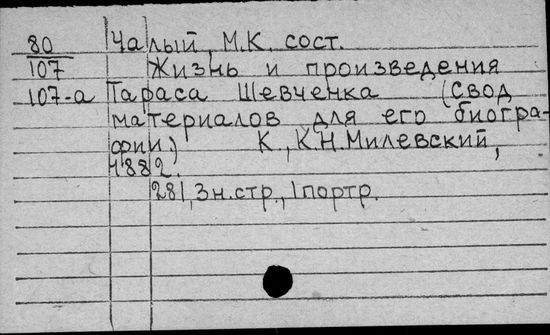 80 Чалый, М.К. сост.
107 Жизнь и произведения
107-а Тараса Шевченка (Свод
материалов для его биогра-
фии) К., К.Н.Милевский,
1882.
281, 3н.стр., 1портр.